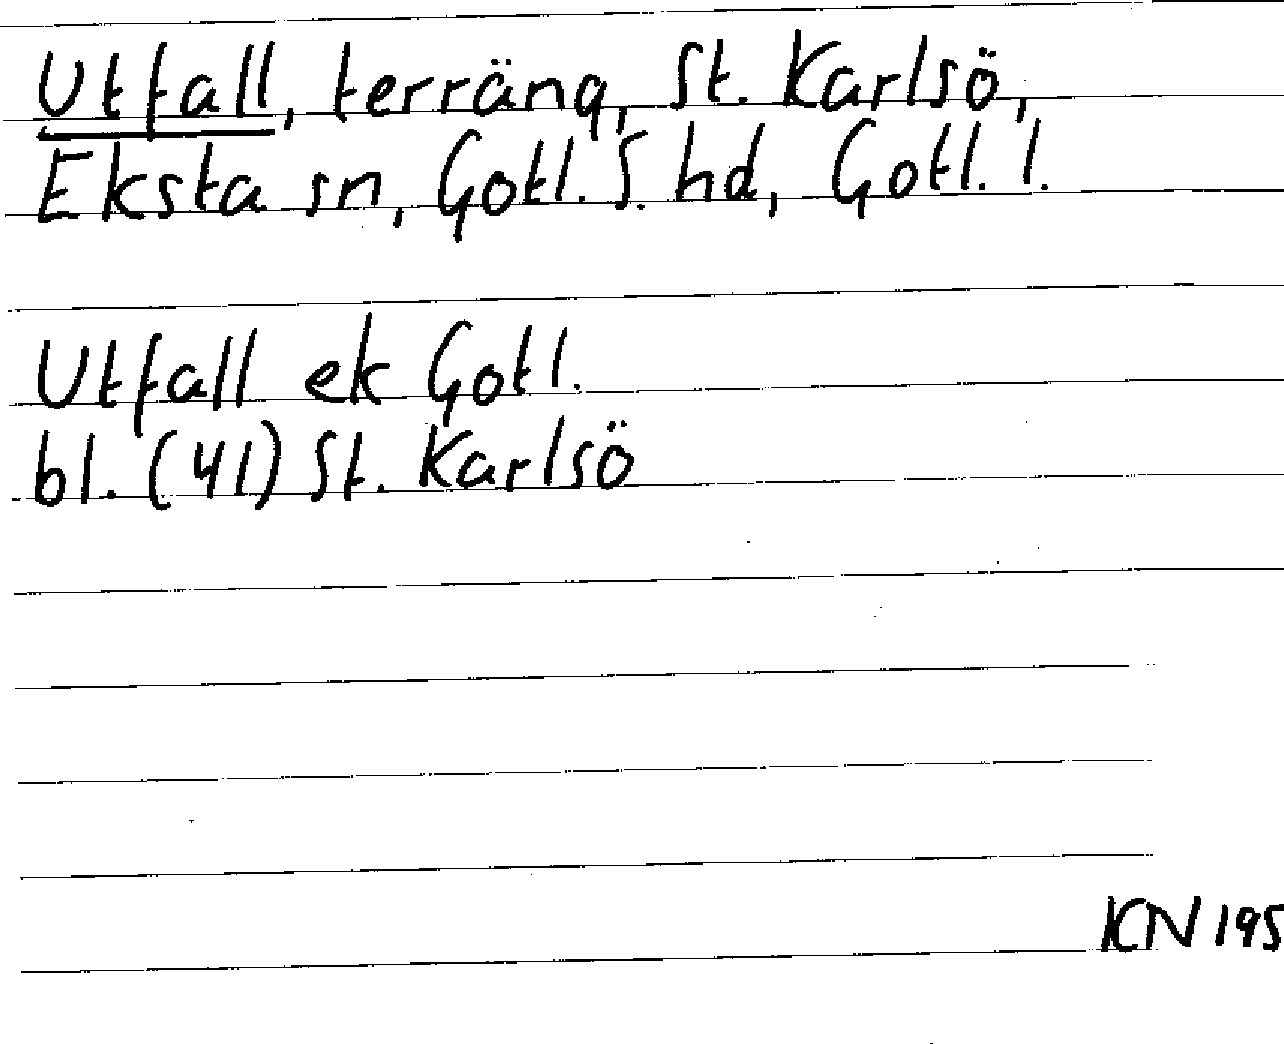 Utfall, terräng, St. Karlsö,
Eksta sn, Gotl. S. hd, Gotl. l.
Utfall ek Gotl.
bl. (41) St. Karlsö
KN 195